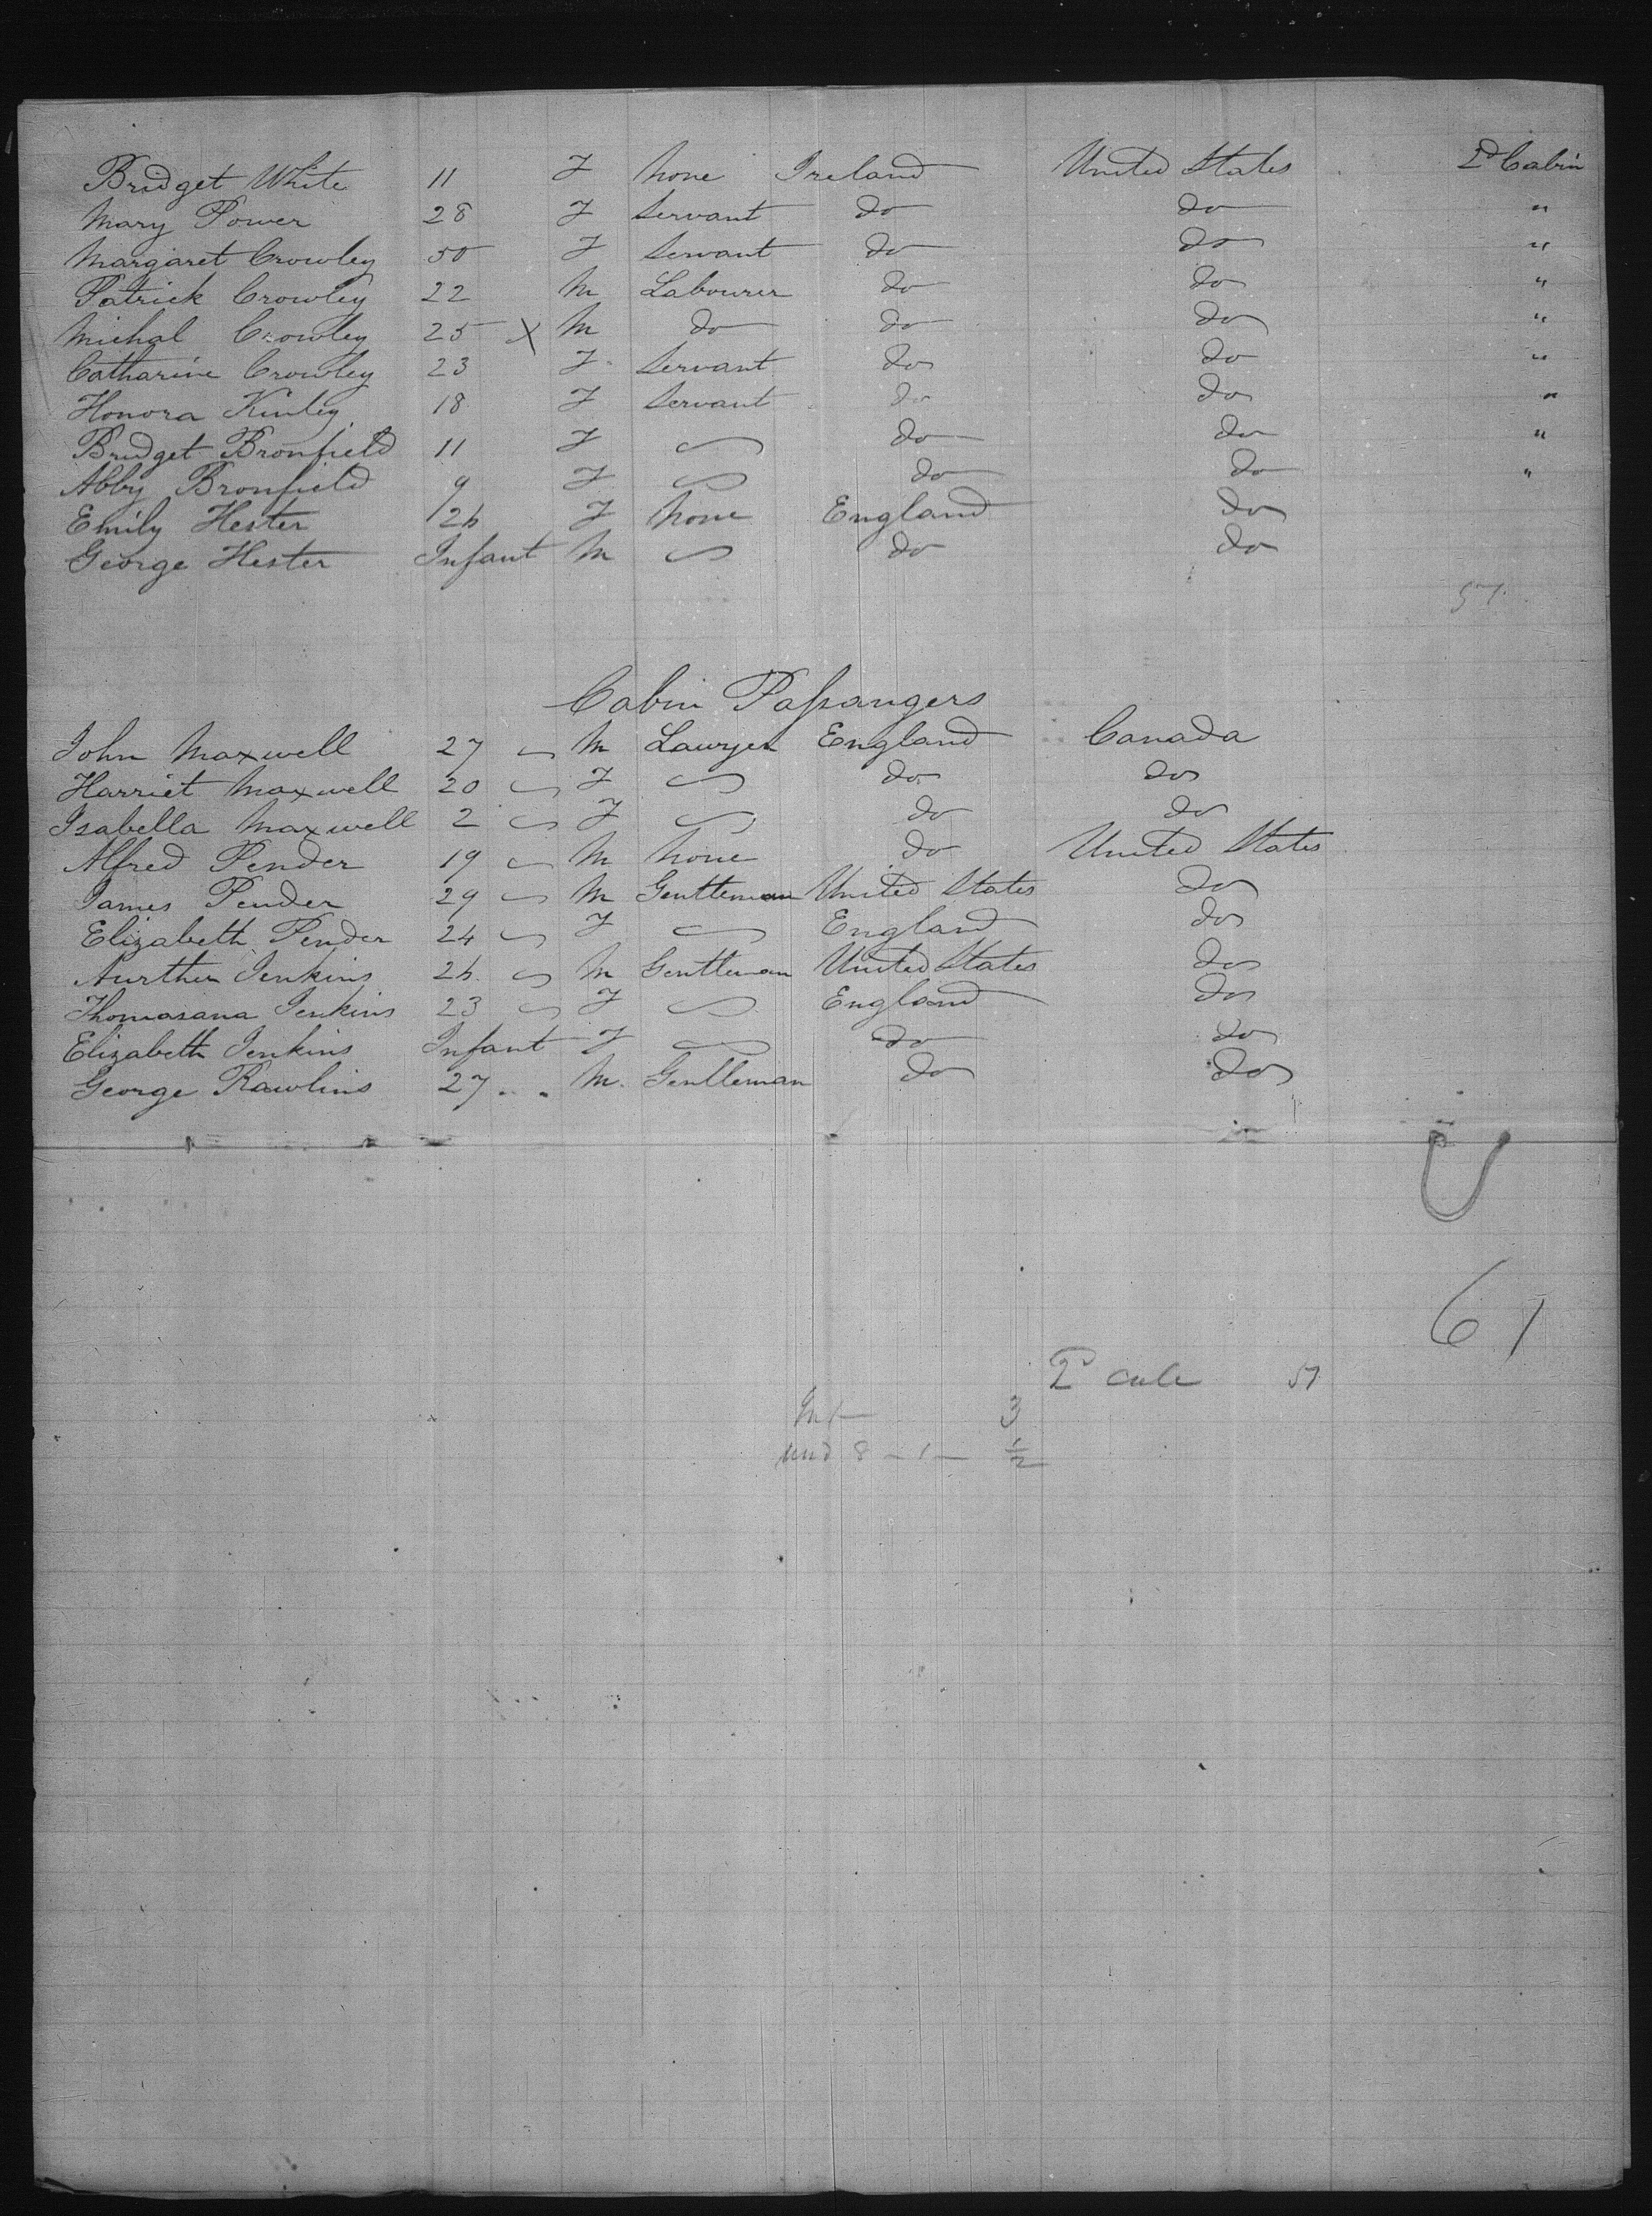 Bridget White 11 F None Ireland United States 2d Cabin
Mary Power 28 F Servant do do "
Margaret Crowley 50 F Servant do do "
Patrick Crowley 22 M Labourer do do "
Michal Crowley 25 X M do do do "
Catharine Crowley 23 F Servant do do "
Honora Kinley 18 F Servant do do "
Bridget Bronfield 11 F do do "
Abby Bronfield 9 F do do "
Emily Hester 26 F None England do
George Hester Infant M do do
57
Cabin Passangers
John Maxwell 27 M Lawyer England Canada
Harriet Maxwell 20 F do do
Isabella Maxwell 2 F do do
Alfred Pender 19 M None do United States
James Pender 29 M Gentleman United States do
Elizabeth Pender 24 F England do
Aurther Jenkins 26 M Gentleman United States do
Thomasana Jenkins 23 F England do
Elizabeth Jenkins Infant F do do
George Rawlins 27 M. Gentleman do do
61
2d 57
Inf 3
und 8 - 1 - 1/2